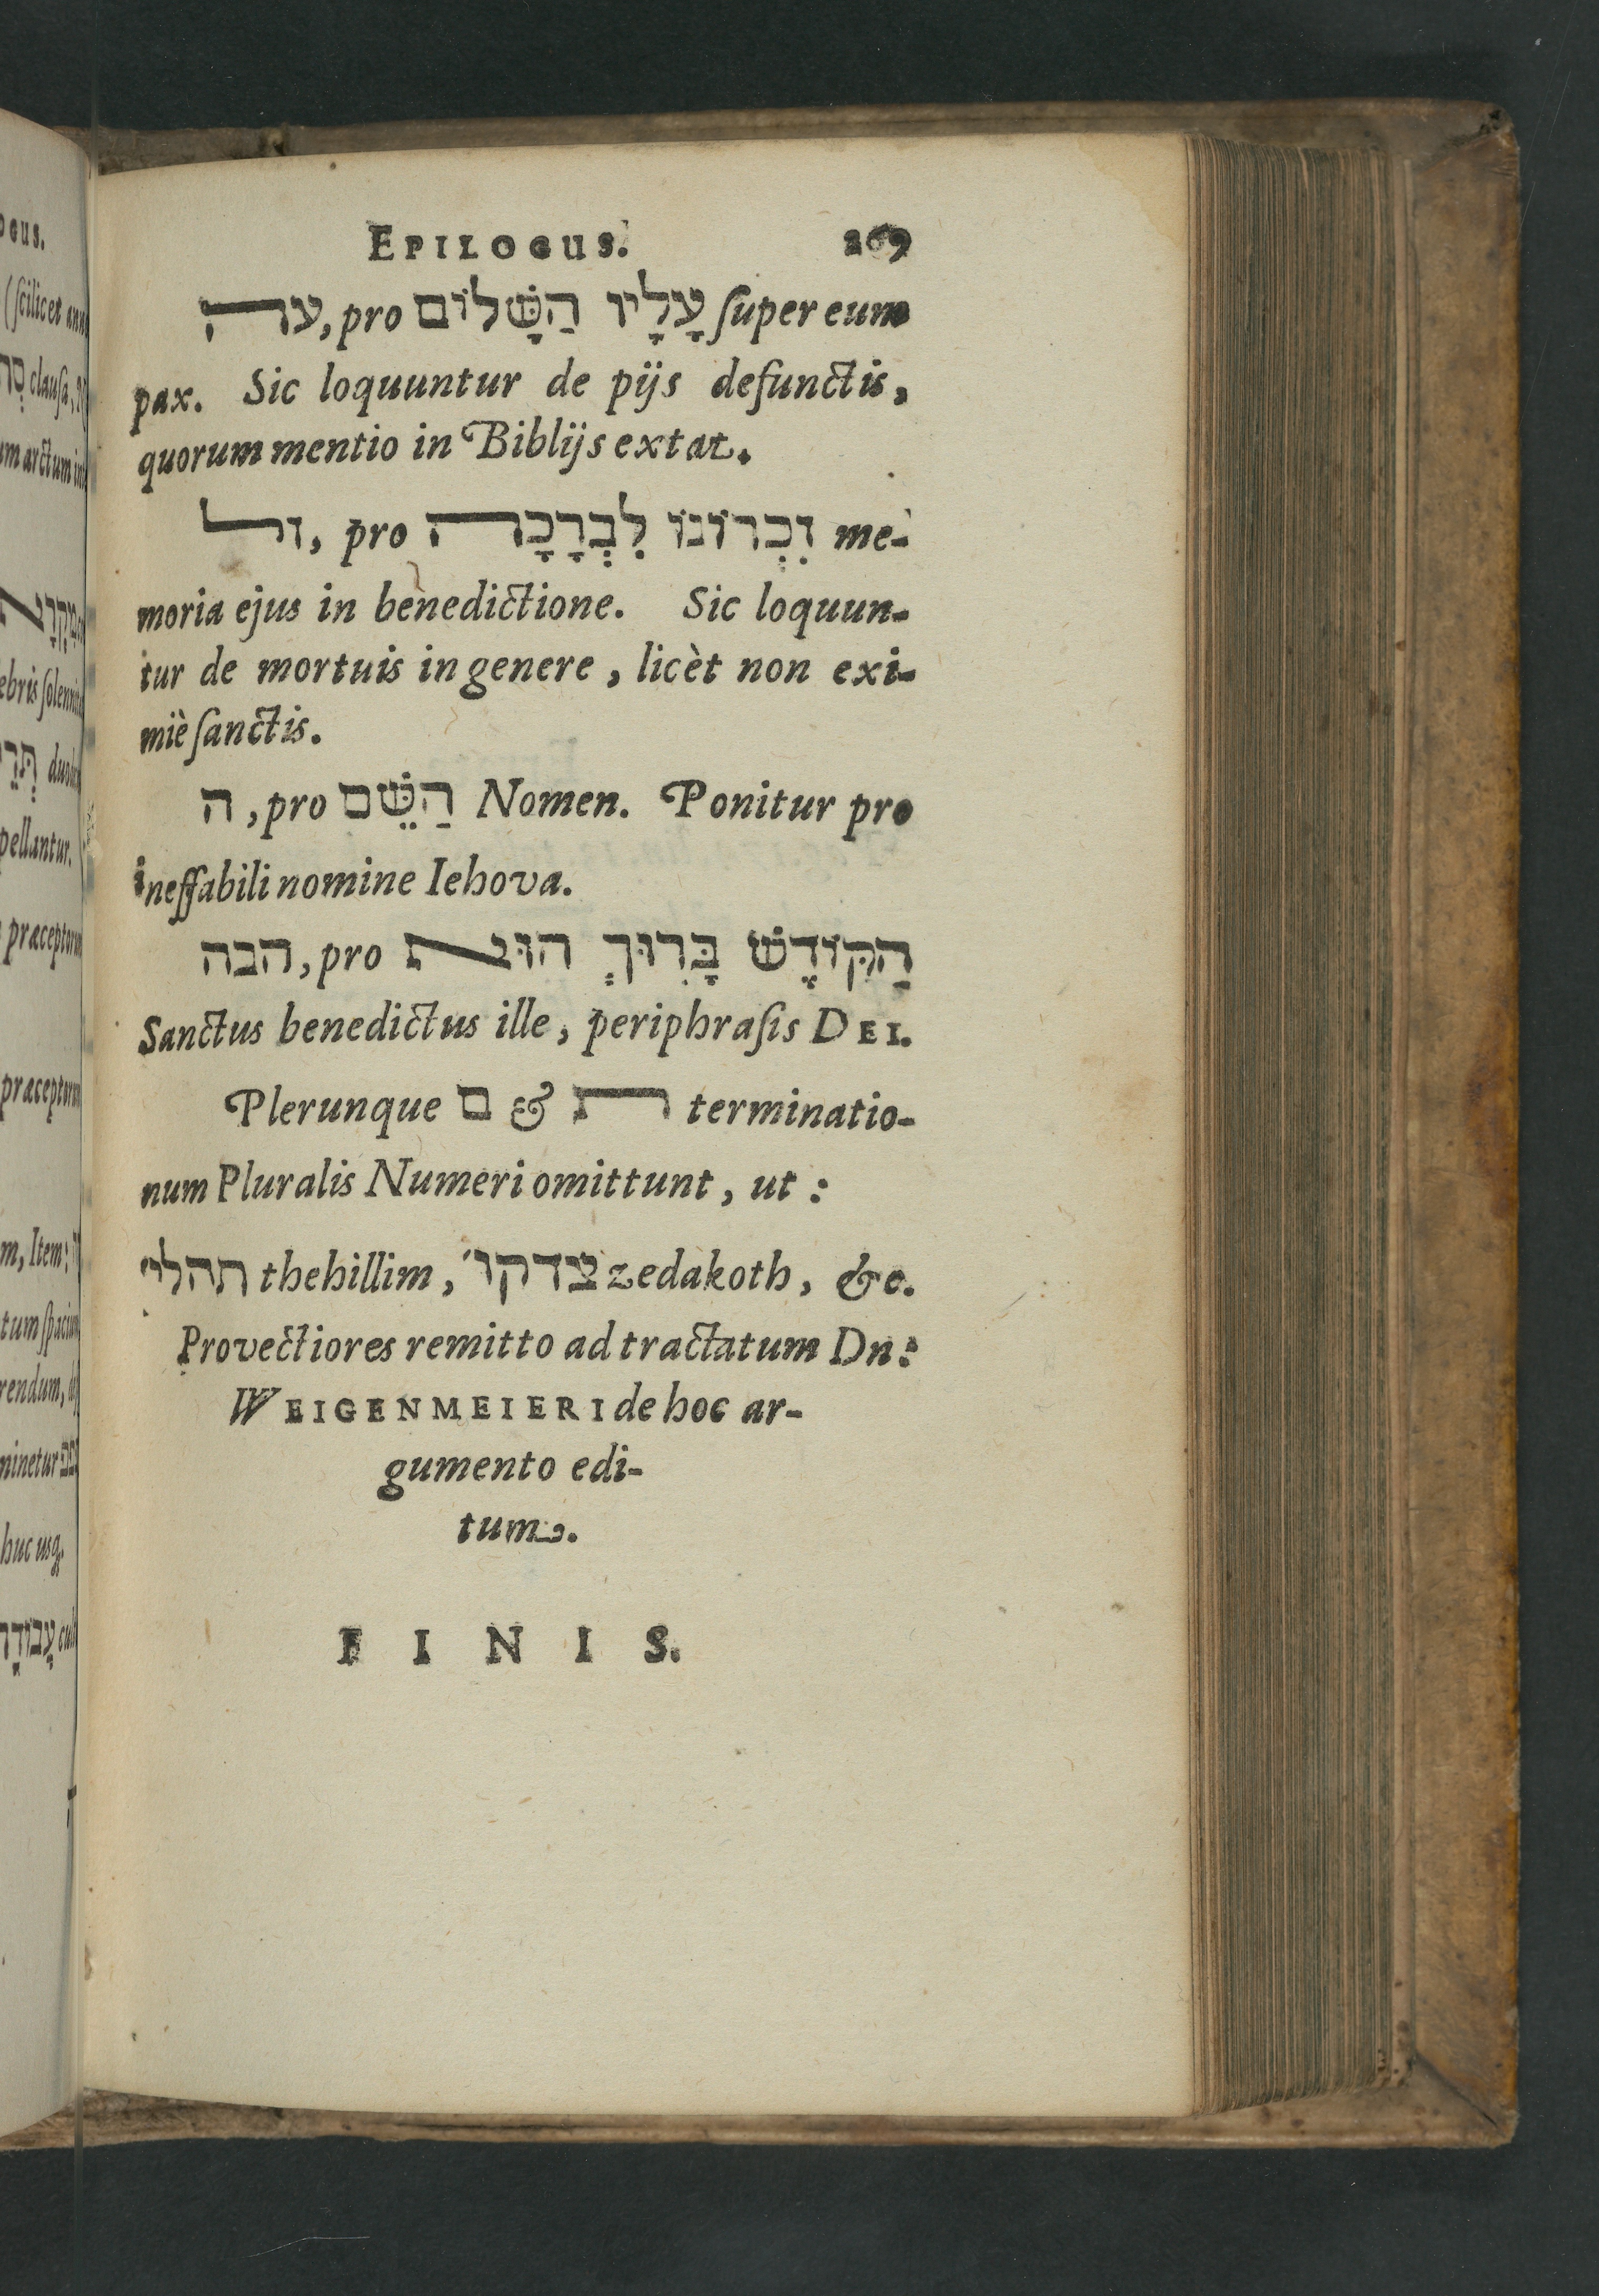 EPILOGUS. 269
עה, pro עָלָיו הַשָּׁלוֹם ſuper eum
pax. Sic loquuntur de pijs defunctis,
quorum mentio in Biblijs extat.
זל, pro זִכְרוֹנוֹ לִבְרָכָה me-
moria ejus in benedictione. Sic loquun-
tur de mortuis in genere, licèt non exi-
miè ſanctis.
ה, pro הַשֵּׁם Nomen. Ponitur pro
ineffabili nomine Iehova.
הבה, pro הַקּוֹדֶשׁ בָּרִוּךְ הוּא
Sanctus benedictus ille, periphraſis DEI.
Plerunque ם & ת terminatio-
num Pluralis Numeri omittunt, ut:
תהלי' thehillim, צדקו' zedakoth, &c.
Provectiores remitto ad tractatum Dn:
WEIGENMEIERI de hoc ar-
gumento edi-
tum.
FINIS.